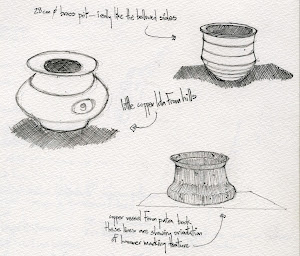 28cm ø brass pot - really like the bellowed sides
little copper lota from hills
copper vessel from patan book
these lines are showing orientation
of hammer marking texture